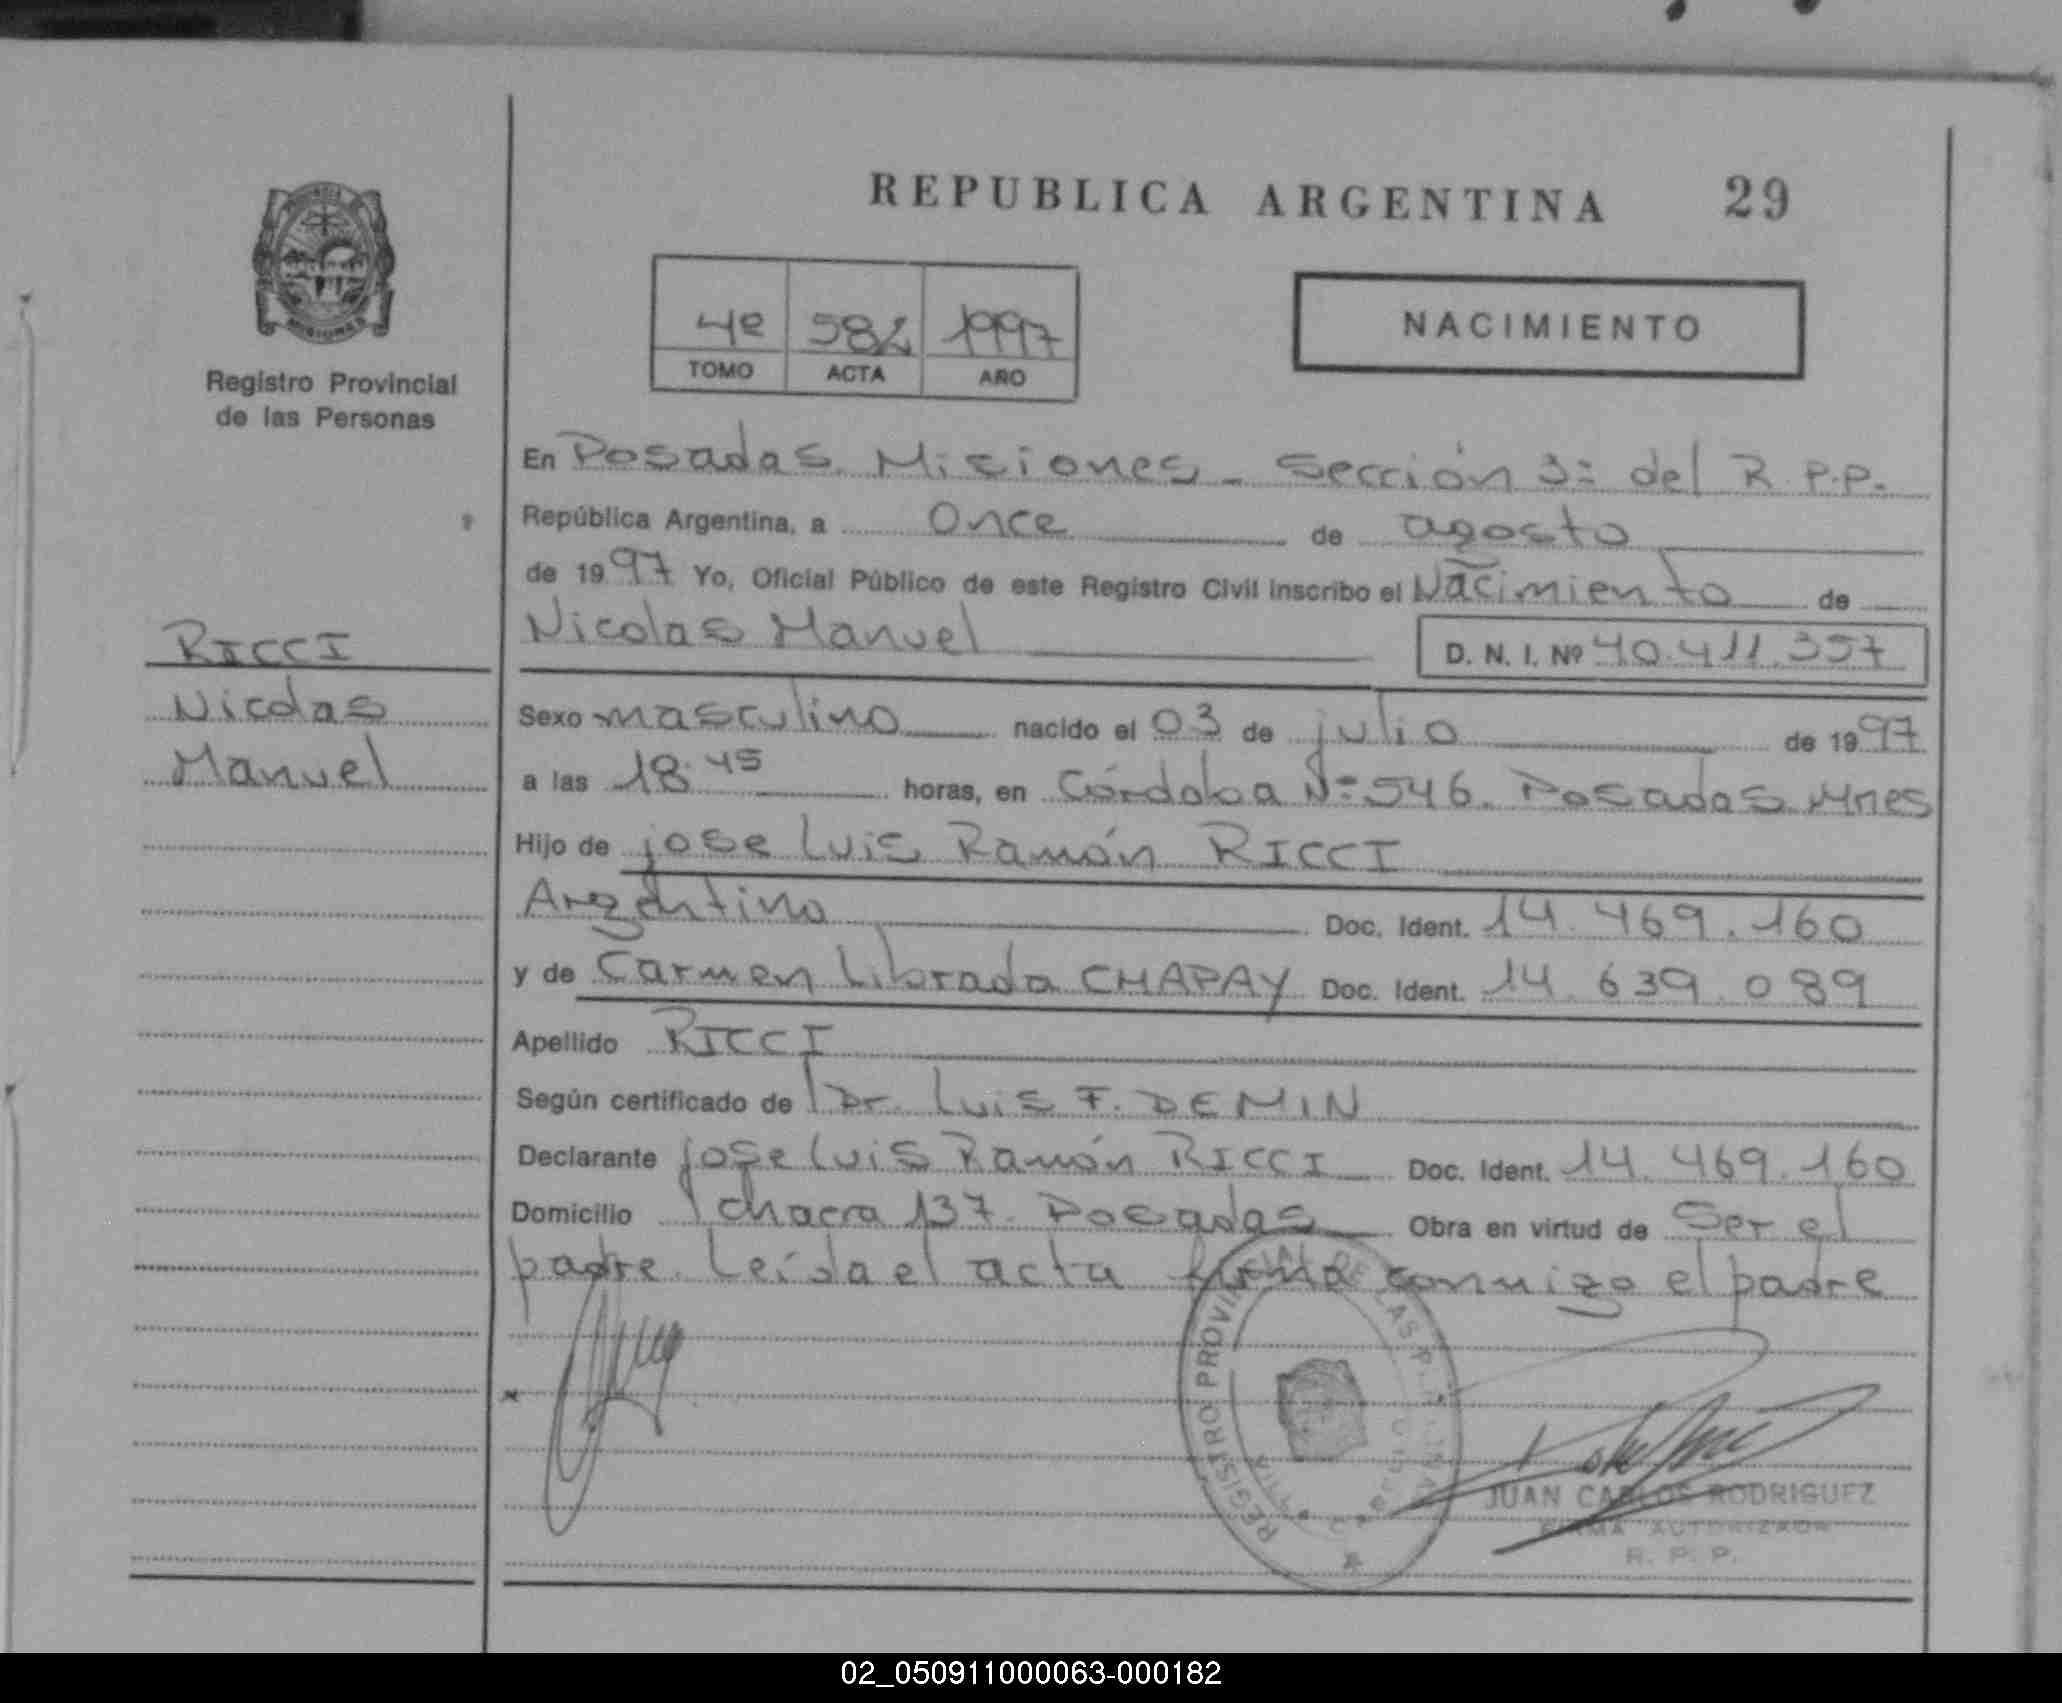 REPUBLICA ARGENTINA 29
4º 584 1997
TOMO ACTA AÑO
NACIMIENTO
Registro Provincial
de las Personas
MISIONES
En Posadas Misiones - Sección 3= del R.P.P.
República Argentina, a Once de agosto
de 1997 Yo, Oficial Público de este Registro Civil inscribo el Nacimiento de
Nicolas Manuel D. N. I. Nº 40.411.357
RICCI
Nicolas
Manuel
Sexo masculino nacido el 03 de julio de 1997
a las 18:45 horas, en Córdoba Nº 546. Posadas Mnes
Hijo de jose Luis Ramón RICCI
Argentino Doc. Ident. 14.469.160
y de Carmen Librada CHAPAY Doc. Ident. 14.639.089
Apellido RICCI
Según certificado de Dr. Luis F. DEMIN
Declarante jose Luis Ramón RICCI Doc. Ident. 14.469.160
Domicilio chacra 137. Posadas Obra en virtud de Ser el
padre. Leída el acta firma conmigo el padre
REGISTRO PROVINCIAL DE LAS
JUAN CARLOS RODRIGUEZ
FIRMA AUTORIZADA
R. P. P.
02_050911000063-000182